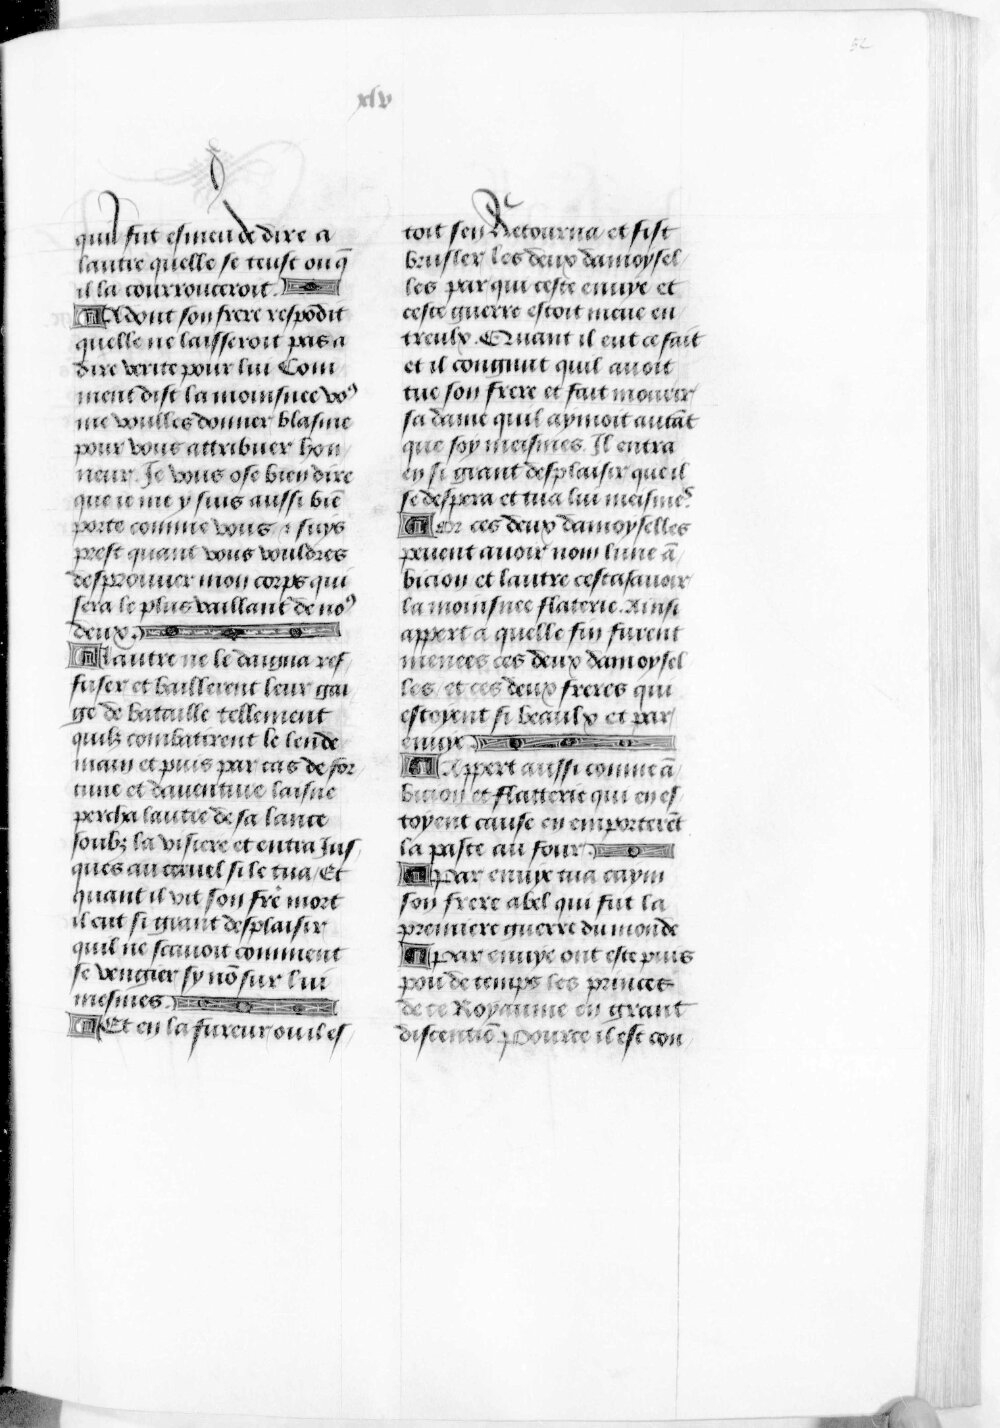 52
xlv
quil fut esmeu de dire a
lautre quelle se teust ou q̄
il la courrouceroit.
Adont son frere respōdit
quelle ne laisseroit pas a
dire verite pour lui Com
ment dist la moinsnee voꝰ
me voulles donner blasme
pour vous attribuer hon
neur. Je vous ose bien dire
que ie me y suis aussi biē
porte comme vous / ⁊ suys
prest quant vous vouldres
desprouuer mon corps qui
sera le plus vaillant de noꝰ
deux.
lautre ne le daigna ref/
fuser et baillerent leur gai
ge de bataille tellement
quilz combatirent le lende
main et puis par cas de for/
tune et dauenture laisne
percha lautre de sa lance
soubz la visiere et entra Jus/
ques au ceruel si le tua / Et
quant il vit son frē mort
il eut si grant desplaisir
quil ne scauoit comment
se vengier sy nō sur lui
mesmes.
Et en la fureur ou il es/
toit sen Retourna et fist
brusler les deux damoysel/
les par qui ceste enuye et
ceste guerre estoit meue en
treulx. Quant il eut ce fait
et il congnut quil auoit
tue son frere et fait mourir
sa dame quil aymoit autāt
que soy meismes. Il entra
en si grant desplaisir que il
se despera et tua lui meismeˢ.
Or ces deux damoyselles
peuent auoir nom lune ā/
bicion et lautre cestasauoir
la moinsnee flaterie. Ainsi
appert a quelle fin furent
menees ces deux damoysel/
les / et ces deux freres qui
estoyent si beaulx et par
enuye.
Appert aussi comme ā/
bicion et flatterie qui en es/
toyent cause en emporterēt
la paste au four.
Par enuye tua caym
son frere abel qui fut la
premiere guerre du monde
Par enuye ont este puis
pou de temps les princes
de ce Royaume en grant
discentiō Pource il est con/